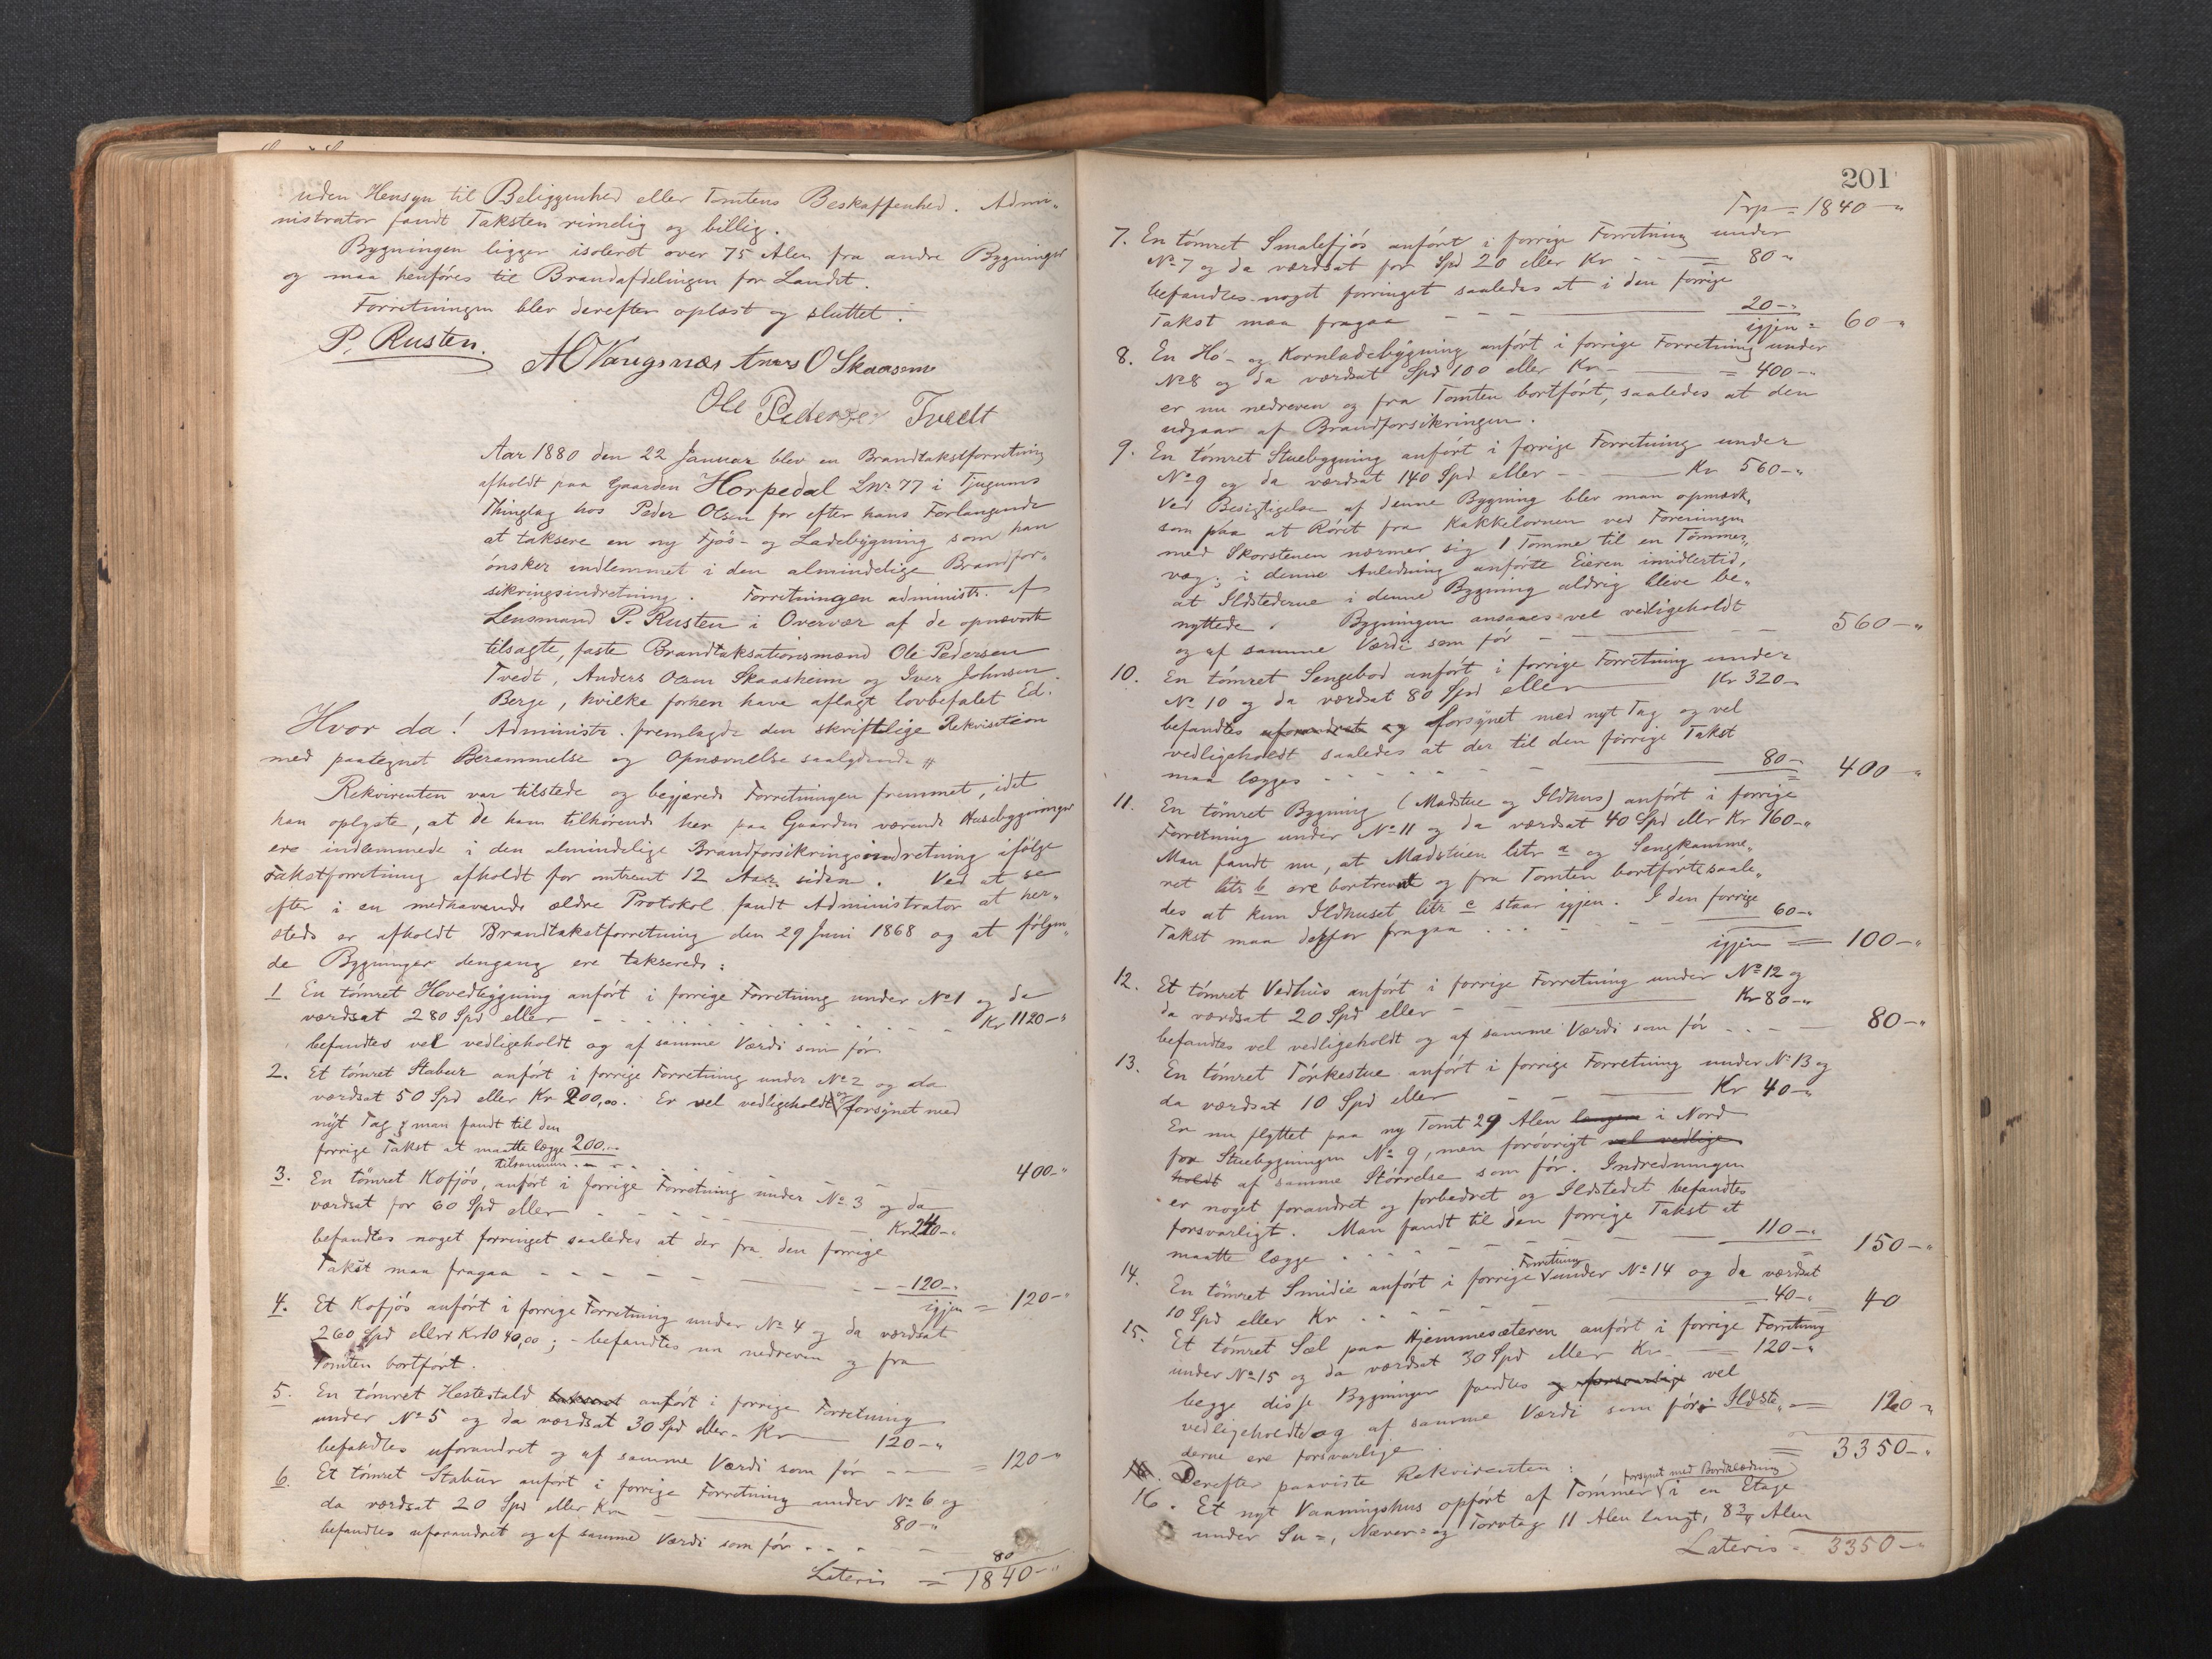 uden Hensyn til Beliggenhed eller Tomtens Beskaffenhed. Admi„
nistrator fandt Taksten rimelig og billig.
Bygningen ligger isoleret over 75 Alen fra andre Bygninger
og maa henføres til Brandafdelingen for Landet.
Forretningen blev derefter oplæst og sluttet.
P. Rusten.
Anders O Skaasem
Ole Pedersen Tvedt
Aar 1880 den 22 Januar blev en Brandtakstforretning
afholdt paa Gaarden Horpedal LNr 77 i Tjugums
Thinglag hos Peder Olsen for efter hans Forlangende
at taksere en ny Fjøs- og Ladebygning som han
ønsker indlemmet i den almindelige Brandfor„
sikringsindretning. Forretningen administr. af
Lensmand P. Rusten i Overvær af de opnævnte
tilsagte, faste Brandtaksationsmænd Ole Pedersen
Tvedt, Anders Olsen Skaasheim og Iver Johnsen
Berge, hvilke forhen have aflagt lovbefalet Ed.
Hvor da! Administr. fremlagde den skriftlige Rekvisition
med paategnet Berammelse og Opnævnelse saalydende #
Rekvirenten var tilstede og begjærede Forretningen fremmet, idet
han oplyste, at de ham tilhørende her paa Gaarden værende Husebygninger
ere indlemmede i den almindelige Brandforsikringsindretning ifølge
Takstforretning afholdt for omtrent 12 Aar siden. Ved at se
efter i en medhavende ældre Protokol fandt Administrator at her„
steds er afholdt Brandtakstforretning den 29 Juni 1868 og at følgen„
de Bygninger dengang ere takserede:
1 En tømret Hovedbygning anført i forrige Forretning under No 1 og da
værdsat 280 Spd eller - - - Kr 1120-„
befandtes vel vedligeholdt og af samme Værdi som før
2. Et tømret Stabur anført i forrige Forretning under No 2 og da
værdsat 50 Spd eller Kr 200,00. Er vel vedligeholdt og forsynet med
nyt Tag & man fandt til den
forrige Takst at maatte lægge 200.-
tilsammen - - - 400-„
3. En tømret Kofjøs, anført i forrige Forretning under No 3 og da
værdsat for 60 Spd eller - - - Kr 240-„
befandtes noget forringet saaledes at der fra den forrige
Takst maa fragaa - - - 120-„
igjen = 120-„
4. Et Kofjøs anført i forrige Forretning under No 4 og da værdsat
260 Spd eller Kr 1040,00; - befandtes nu nedreven og fra
Tomten bortført.
5. En tømret Hestestald anført i forrige Forretning
under No 5 og da værdsat 30 Spd eller - Kr 120-„
befandtes uforandret og af samme Værdi som før - - = 120-„
6. Et tømret Stabur anført i forrige Forretning under No 6 og
da værdsat 20 Spd eller Kr 80-„
befandtes uforandret og af samme Værdi som før - - - 80
Lateris = 1840-„
201
Trp = 1840-„
7. En tømret Smalefjøs anført i forrige Forretning under
No 7 og da værdsat for Spd 20 eller Kr - - = 80-„
befandtes noget forringet saaledes at i den forrige
Takst maa fragaa - - - 20-„
igjen = 60-„
8. En Hø- og Kornladebygning anført i forrige Forretning under
No 8 og da værdsat Spd 100 eller Kr - = 400-„
er nu nedreven og fra Tomten bortført, saaledes at den
udgaar af Brandforsikringen.
9. En tømret Stuebygning anført i forrige Forretning under
No 9 og da værdsat 140 Spd eller - Kr 560-„
Ved Besigtigelse af denne Bygning blev man opmærk„
som paa at Røret fra Kakkelovnen ved Foreningen
med Skorstenen nærmer sig 1 Tomme til en Tømmer„
væg; i denne Anledning anførte Eieren imidlertid,
at Ildstederne i denne Bygning aldrig bleve be„
nyttede. Bygningen ansaaes vel vedligeholdt
og af samme Værdi som før - - - 560-„
10. En tømret Sengebod anført i forrige Forretning under
No 10 og da værdsat 80 Spd eller Kr 320-
befandtes uforandret og forsynet med nyt Tag og vel
vedligeholdt saaledes at der til den forrige Takst
maa lægges - - - 80- = 400-„
11. En tømret Bygning (Madstue og Ildhus) anført i forrige
Forretning under No 11 og da værdsat 40 Spd eller Kr 160-„
Man fandt nu, at Madstuen litr a og Sengkamme„
ret litr b ere bortrevet og fra Tomten bortførte saale„
des at kun Ildhuset litr c staar igjen. I den forrige
Takst maa derfor fragaa . . . - 60-„
igjen = 100-„
12. Et tømret Vedhus anført i forrige Forretning under No 12 og
da værdsat 20 Spd eller - Kr 80-„
befandtes vel vedligeholdt og af samme Værdi som før - - - 80-„
13. En tømret Tørkestue anført i forrige Forretning under No 13 og
da værdsat 10 Spd eller - Kr 40-„
Er nu flyttet paa ny Tomt 29 Alen længere i Nord
for Stuebygningen No 9, men forøvrigt vel vedlige
holdt af samme Størrelse som før. Indredningen
er noget forandret og forbedret og Ildstedet befandtes
forsvarligt. Man fandt til den forrige Takst at
maatte lægge - - - 110-„ = 150-„
14. En tømret Smidie anført i forrige Forretning under No 14 og da værdsat
10 Spd eller Kr - - - 40-„ = 40
15. Et tømret Sæl paa Hjemmesæteren anført i forrige Forretning
under No 15 og da værdsat 30 Spd eller Kr - = 120-„
begge disse Bygninger fandtes og forsvarlig vel
vedligeholdte og af samme Værdi som før. Ildste„ = 120-„
derne ere forsvarlige = 3350-„
Derefter paaviste Rekvirenten:
16. Et nyt Vaaningshus opført af Tømmer forsynet med Bordklædning i en Etage
under Su=, Næver= og Torvtag 11 Alen langt, 8 3/4 Alen
Lateris = 3350-„